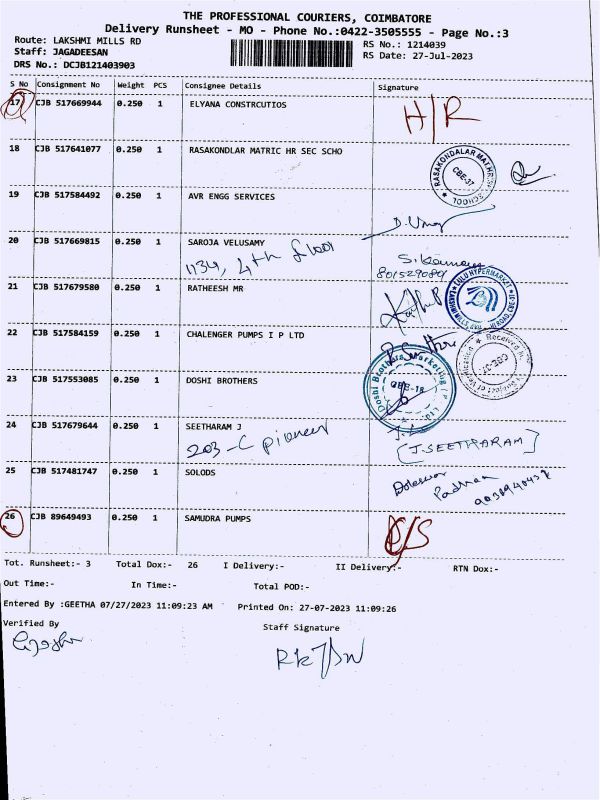 THE PROFESSIONAL COURIERS, COIMBATORE
Delivery Runsheet - MO - Phone No.:0422-3505555 - Page No.:3
Route: LAKSHMI MILLS RD
RS No.: 1214039
Staff: JAGADEESAN
RS Date: 27-Jul-2023
DRS No.: DCJB121403903
S No Consignment No Weight PCS Consignee Details Signature
17 CJB 517669944 0.250 1 ELYANA CONSTRCUTIOS H/R
18 CJB 517641077 0.250 1 RASAKONDLAR MATRIC HR SEC SCHO
RASAKONDALAR MAT.HR.SEC. SCHOOL CBE-37
19 CJB 517584492 0.250 1 AVR ENGG SERVICES
20 CJB 517669815 0.250 1 SAROJA VELUSAMY
1134, 4th floor
21 CJB 517679580 0.250 1 RATHEESH MR
LULU HYPERMARKET
22 CJB 517584159 0.250 1 CHALENGER PUMPS I P LTD
CBE-37
23 CJB 517553085 0.250 1 DOSHI BROTHERS
Doshi Brothers Marketing (P) Ltd. CBE-18
24 CJB 517679644 0.250 1 SEETHARAM J
203-C pioneer
[J.SEETHARAM]
25 CJB 517481747 0.250 1 SOLODS
26 CJB 89649493 0.250 1 SAMUDRA PUMPS
Tot. Runsheet:- 3 Total Dox:- 26 I Delivery:- II Delivery:- RTN Dox:-
Out Time:- In Time:- Total POD:-
Entered By :GEETHA 07/27/2023 11:09:23 AM Printed On: 27-07-2023 11:09:26
Verified By
Staff Signature